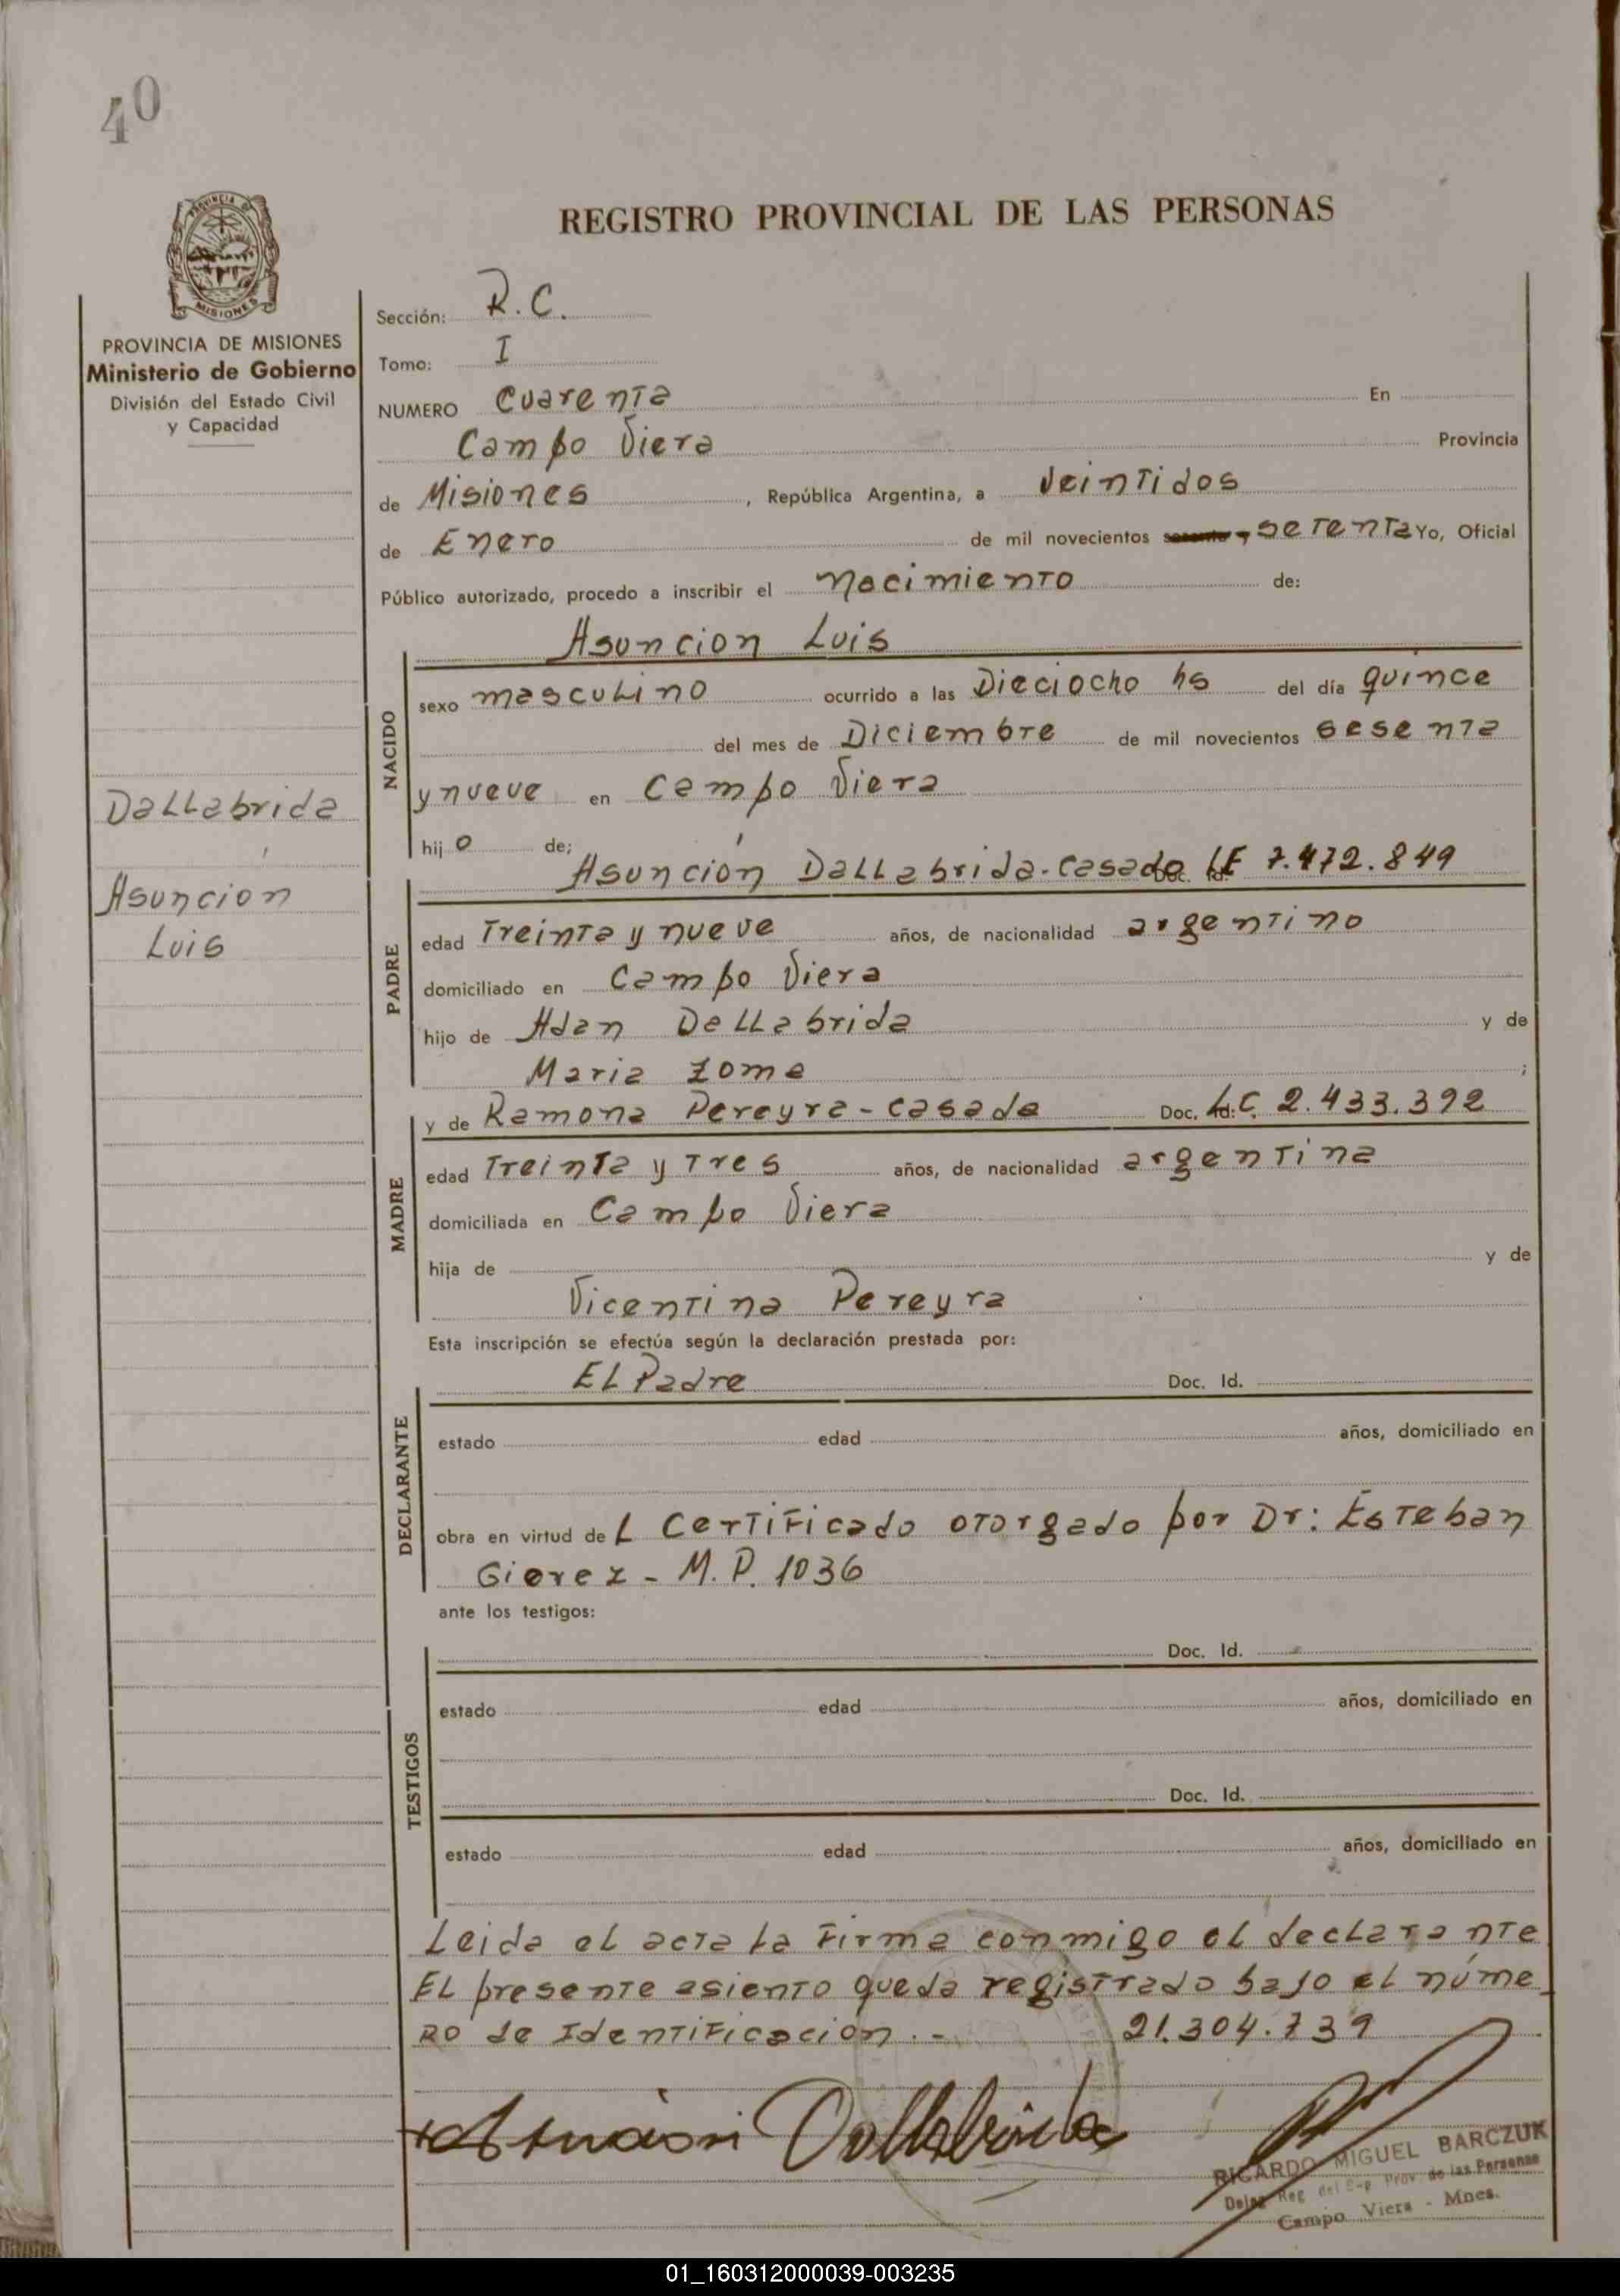 40
REGISTRO PROVINCIAL DE LAS PERSONAS
PROVINCIA DE MISIONES
Ministerio de Gobierno
División del Estado Civil
y Capacidad
Dallabrida
Asuncion
Luis
Sección: R.C.
Tomo: I
NUMERO Cuarenta En
Campo Viera Provincia
de Misiones, República Argentina, a Veintidos
de Enero de mil novecientos setenta Yo, Oficial
Público autorizado, procedo a inscribir el Nacimiento de:
Asuncion Luis
NACIDO
sexo masculino ocurrido a las Dieciocho hs del día quince
del mes de Diciembre de mil novecientos sesenta
y nueve en Campo Viera
hijo de;
Asunción Dallabrida - casado LE 7.472.849
PADRE
edad Treinta y nueve años, de nacionalidad argentino
domiciliado en Campo Viera
hijo de Adan Dallabrida y de
Maria Zome ;
y de Ramona Pereyra - casada Doc. L.C. 2.433.392
MADRE
edad Treinta y Tres años, de nacionalidad argentina
domiciliada en Campo Viera
hija de y de
Vicentina Pereyra
Esta inscripción se efectúa según la declaración prestada por:
El Padre Doc. Id.
DECLARANTE
estado edad años, domiciliado en
obra en virtud del Certificado otorgado por Dr: Esteban
M.P. 1036
ante los testigos:
Doc. Id.
TESTIGOS
estado edad años, domiciliado en
Doc. Id.
estado edad años, domiciliado en
Leida el acta la firma conmigo el declarante
El presente asiento queda registrado bajo el núme-
ro de Identificación.- 21.304.739
Asunción Dallabrida
RICARDO MIGUEL BARCZUK
Deleg. Reg. del Prov. de las Personas
Campo Viera - Mnes.
01_160312000039-003235